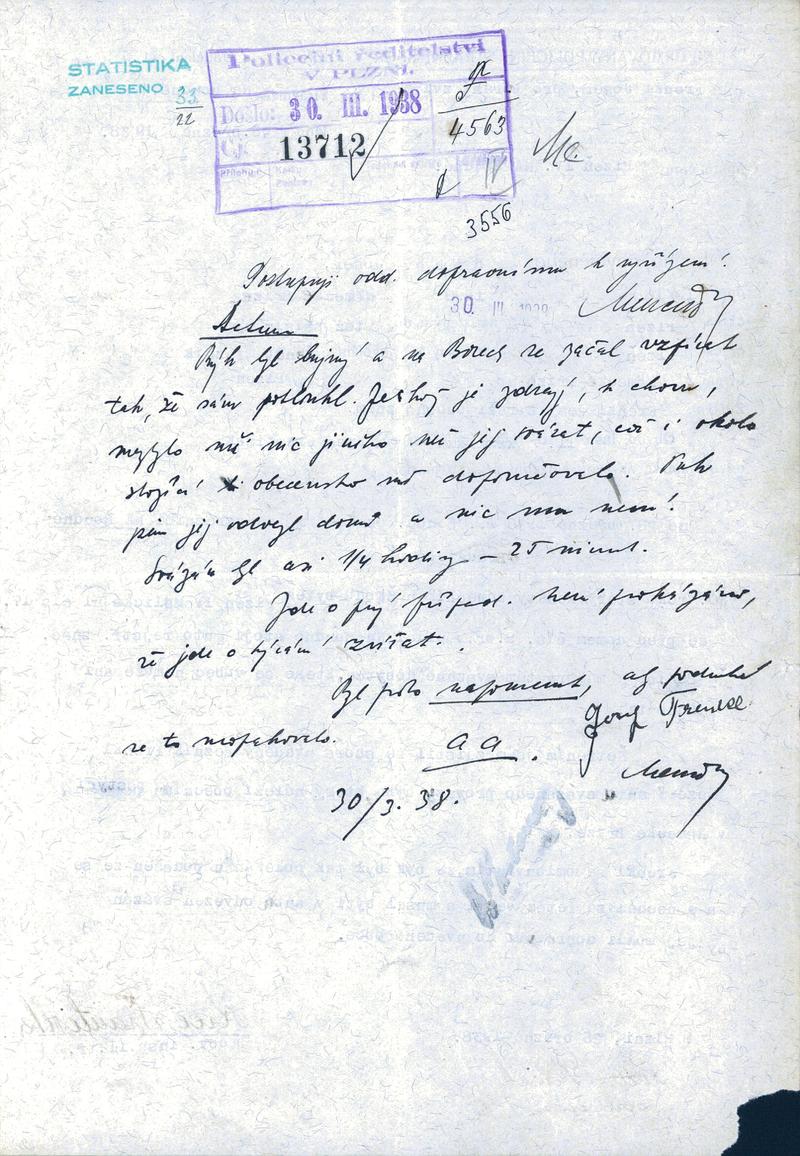 STATISTIKA
ZANESENO 33
22
Policejní ředitelství
V PLZNI.
Došlo: 30. III. 1938
Čj. 13712
4563
IV
3556
Postupuji odd. dopravnímu k vyřízení.
30. III
Actum
Býk byl bujný a na Borech se začal vzpírat
tak, že sám potloukl. Jelikož je zdravý, k chovu,
nezbylo mě nic jiného než jej svázat, což i okolo
stojící obecenstvo mě doporučovalo. Pak
jsem jej odvezl domů a nic mu není.
Svázán byl asi 1/4 hodiny – 25 minut.
Jde o prvý případ. Není prokázáno,
že jde o týrání zvířat.
Byl proto napomenut, aby podruhé
se to neopakovalo.
Josef
a a.
30/3. 38.